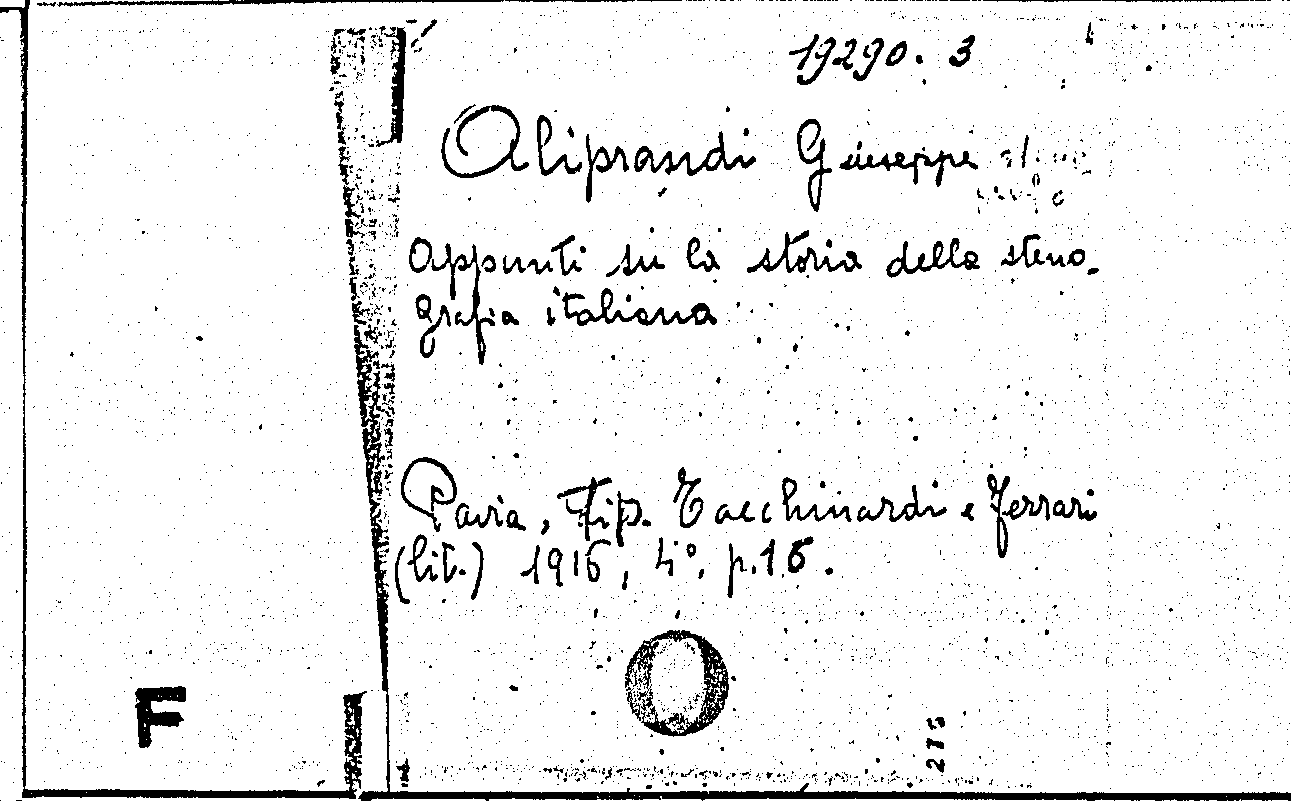 19290. 3
Aliprandi Giuseppe
Appunti su la storia della steno-
grafia italiana
Pavia, Tip. Tacchinardi e Ferrari
(lit.) 1916, 4°, p. 16.
F
275